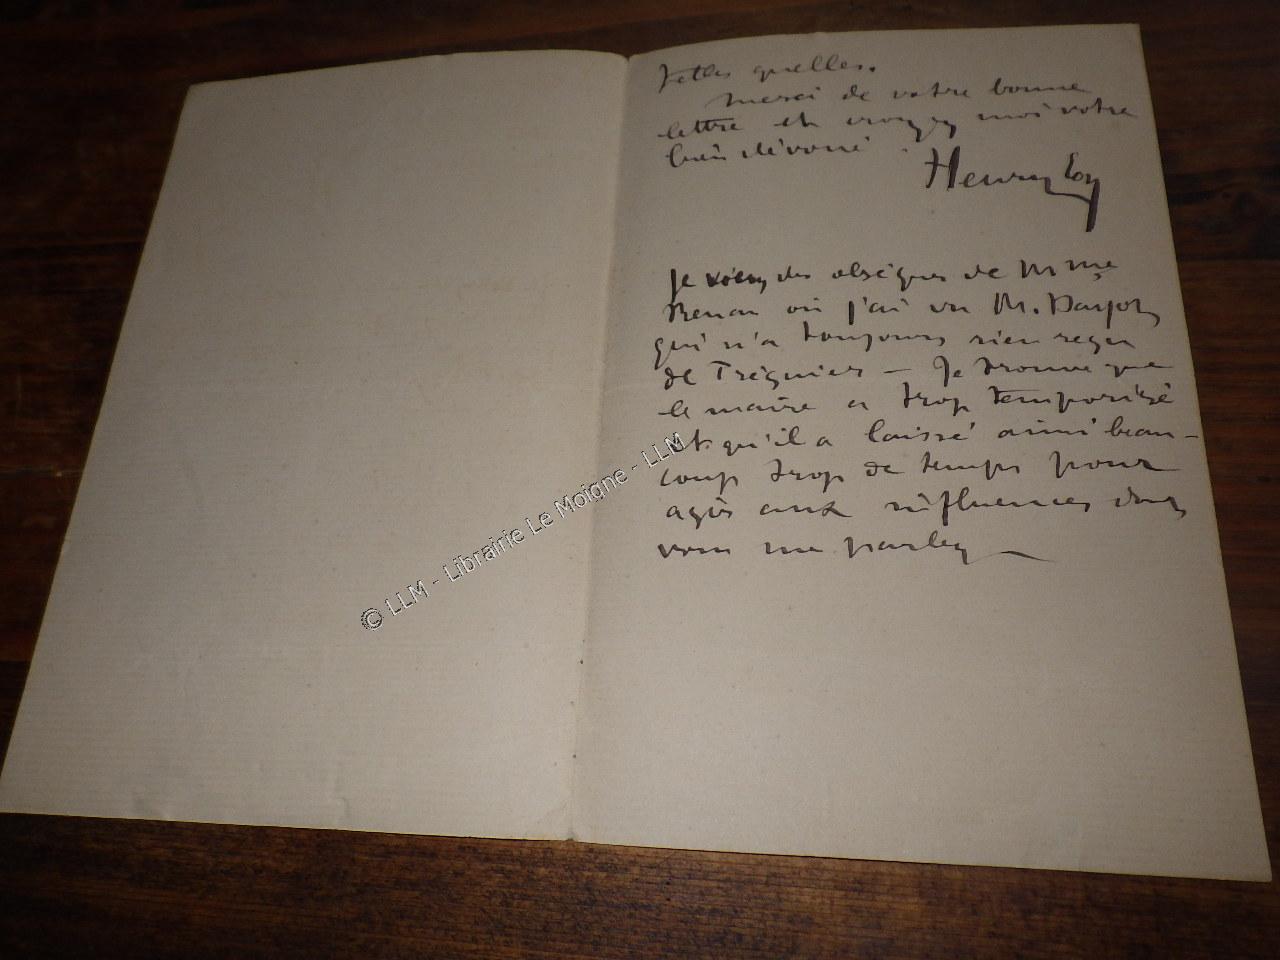 telles quelles.
merci de votre bonne
lettre et croyez moi votre
bien dévoué
Henry
Je viens des obsèques de Mme
Renan où j'ai vu M.
qui n'a toujours rien reçu
de Tréguier — Je trouve que
le maire a trop temporisé
et qu'il a laissé ainsi beau-
coup trop de temps pour
agir aux influences dont
vous me parlez —
© LLM - Librairie Le Moigne - LLM